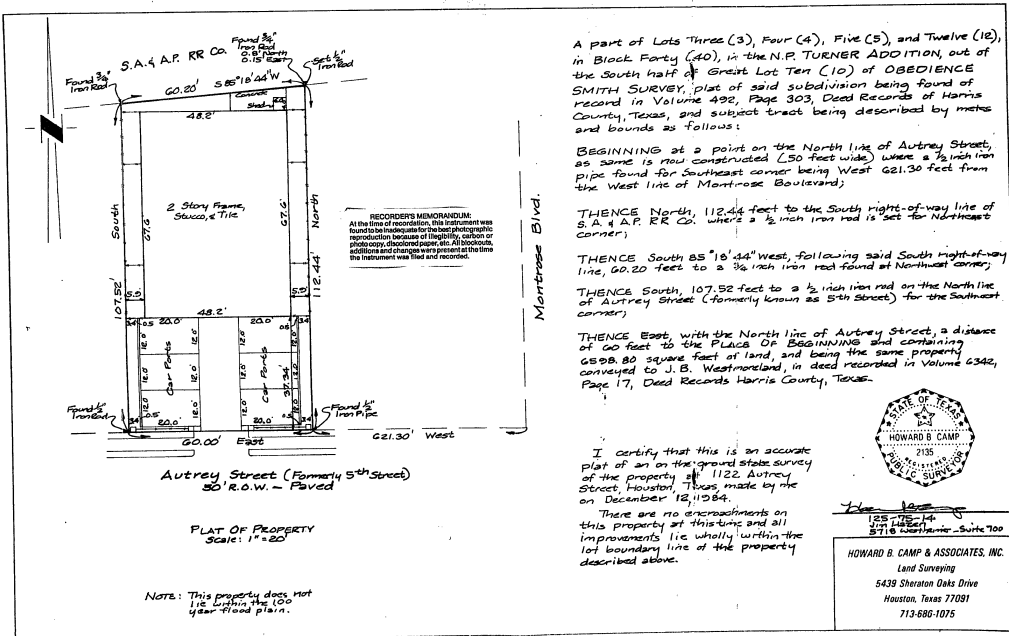 Found 3/4"
Iron Rod
0.8' North
0.15' East
S.A. & A.P. RR Co.
Set 1/2"
Iron Rod
Found 3/4"
Iron Rod
60.20' S 85°18'44" W
Concrete
Shed
48.2'
2 Story Frame,
Stucco, & Tile
South
67.6'
107.52'
67.6'
North
112.44'
5.9'
5.9'
48.2'
3.4 0.5 20.0' 20.0' 0.5 3.4
12.0' 12.0' 12.0' 12.0'
Car Ports
Car Ports
12.0' 12.0' 12.0' 12.0'
37.34'
12.0' 12.0' 12.0' 12.0'
3.4 0.5 20.0' 20.0' 0.5 3.4
Found 1/2"
Iron Rod
Found 1/2"
Iron Pipe
60.00' East
621.30' West
Montrose Blvd.
Autrey Street (Formerly 5th Street)
50' R.O.W. - Paved
PLAT OF PROPERTY
Scale: 1"=20'
NOTE: This property does not
lie within the 100
year flood plain.
RECORDER'S MEMORANDUM:
At the time of recordation, this instrument was
found to be inadequate for the best photographic
reproduction because of illegibility, carbon or
photo copy, discolored paper, etc. All blockouts,
additions and changes were present at the time
the instrument was filed and recorded.
A part of Lots Three (3), Four (4), Five (5), and Twelve (12),
in Block Forty (40), in the N.P. TURNER ADDITION, out of
the South half of Great Lot Ten (10) of OBEDIENCE
SMITH SURVEY, plat of said subdivision being found of
record in Volume 492, Page 303, Deed Records of Harris
County, Texas, and subject tract being described by metes
and bounds as follows:
BEGINNING at a point on the North line of Autrey Street,
as same is now constructed (50 feet wide) where a 1/2 inch iron
pipe found for Southeast corner being West 621.30 feet from
the West line of Montrose Boulevard;
THENCE North, 112.44 feet to the South right-of-way line of
S.A. & A.P. RR Co. where a 1/2 inch iron rod is set for Northeast
corner;
THENCE South 85°18'44" West, following said South right-of-way
line, 60.20 feet to a 3/4 inch iron rod found at Northwest corner;
THENCE South, 107.52 feet to a 1/2 inch iron rod on the North line
of Autrey Street (formerly known as 5th Street) for the Southwest
corner;
THENCE East, with the North line of Autrey Street, a distance
of 60 feet to the PLACE OF BEGINNING and containing
6598.80 square feet of land, and being the same property
conveyed to J.B. Westmoreland, in deed recorded in Volume 6342,
Page 17, Deed Records Harris County, Texas.
I certify that this is an accurate
plat of an on the ground state survey
of the property at 1122 Autrey
Street, Houston, Texas, made by me
on December 12, 1984.
There are no encroachments on
this property at this time and all
improvements lie wholly within the
lot boundary line of the property
described above.
STATE OF TEXAS
HOWARD B CAMP
2135
REGISTERED
PUBLIC SURVEYOR
125-75-14
Jim Hazen
5718 Westheimer - Suite 700
HOWARD B. CAMP & ASSOCIATES, INC.
Land Surveying
5439 Sheraton Oaks Drive
Houston, Texas 77091
713-686-1075